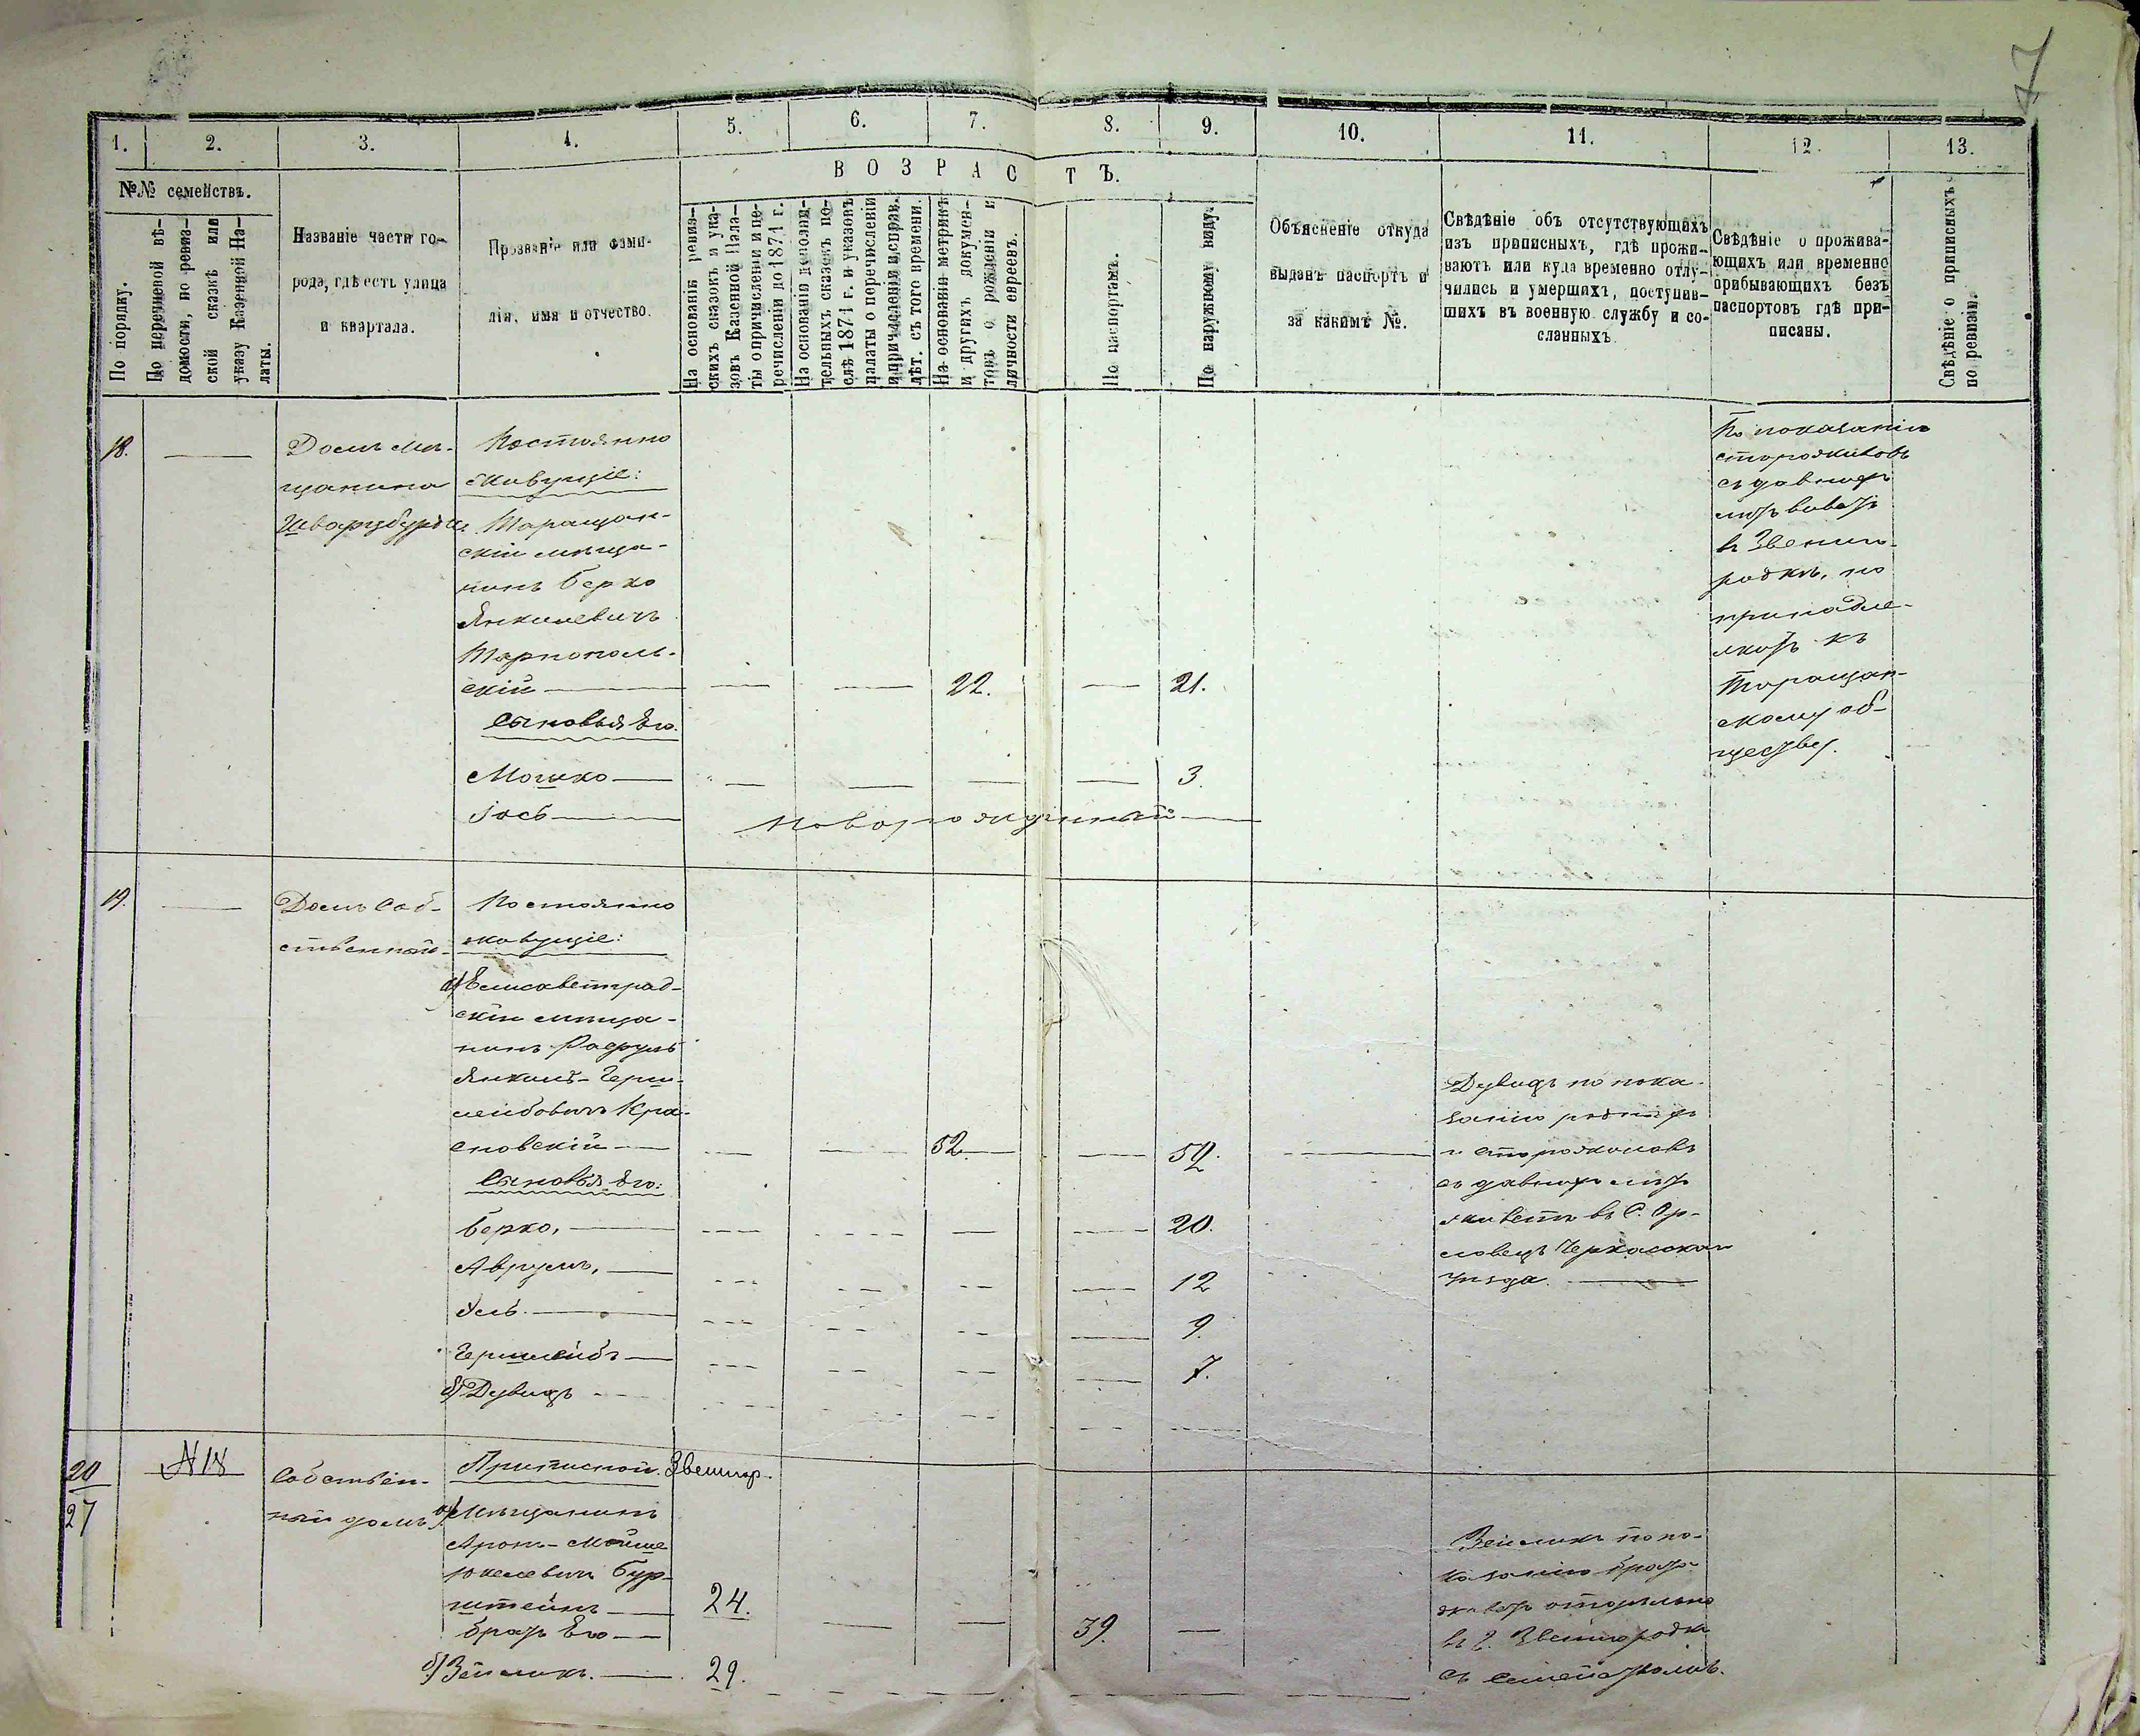 47
1. 2. 3. 4. 5. 6. 7. 8. 9. 10. 11. 12. 13.
№№ семействъ.
По порядку.
По перечневой вѣ-
домости, по ревиз-
ской сказкѣ или
указу Казенной Па-
латы.
Названіе части го-
рода, гдѣ есть улица
и квартала.
Прозваніе или фами-
лія, имя и отчество.
ВОЗРАСТЪ.
На основаніи ревиз-
скихъ сказокъ и ука-
зовъ Казенной Пала-
ты о причисленіи и пе-
речисленіи до 1871 г.
На основаніи дополни-
тельныхъ сказокъ по-
слѣ 1871 г. и указовъ
палаты о перечисленіи
и причисленіи и справ.
лѣт. съ того времени.
На основаніи метрикъ
и другихъ докумен-
товъ о рожденіи и
личности евреевъ.
По паспортамъ.
По наружному виду.
Объясненіе откуда
выданъ паспортъ и
за какимъ №.
Свѣдѣніе объ отсутствующихъ
изъ приписныхъ, гдѣ прожи-
ваютъ или куда временно отлу-
чились и умершихъ, поступив-
шихъ въ военную службу и со-
сланныхъ.
Свѣдѣніе о прожива-
ющихъ или временно
прибывающихъ безъ
паспортовъ гдѣ при-
писаны.
Свѣдѣніе о приписныхъ
по ревизіи.
18.
Домъ мѣ-
щанина
Шварцбурга
Постоянно
живущіе:
Таращан-
скій мѣща-
нинъ Берко
Янкелевичъ
Тарнополь-
скій — 22. — 21.
Сыновья Его.
Мошко — 3.
Іось — новорожденный
По показанію
старожиловъ
съ давнихъ
лѣтъ
въ Звениго-
родкѣ, но
принадле-
житъ къ
Таращан-
скому об-
ществу.
19.
Домъ Соб-
ственный
Постоянно
живущіе:
а) Елисаветград-
скій мѣща-
нинъ Рафуль
Янкель-Герш-
лейбовичъ Кра-
сновскій — 52. — 52.
Сыновья Его:
Берко, — 20.
Аврумъ, — 12
Усь. — 9.
Гершлейбъ — 7.
б) Дувидъ
Дувидъ по пока-
занію родныхъ
и старожиловъ
съ давнихъ лѣтъ
живетъ въ С. Ор-
ловецъ Черкаскаго
уѣзда.
20
27
№ 18
Собствен-
ный домъ
Приписной. Звенигор.
а) Мѣщанинъ
Аронъ-Мойше
Юкелевичъ Бур-
штейнъ — 24. — 39. —
братъ Его —
б) Зейликъ. — 29.
Зейликъ по по-
казанію брата
живетъ отдѣльно
въ г. Звенигородкѣ
съ семействомъ.